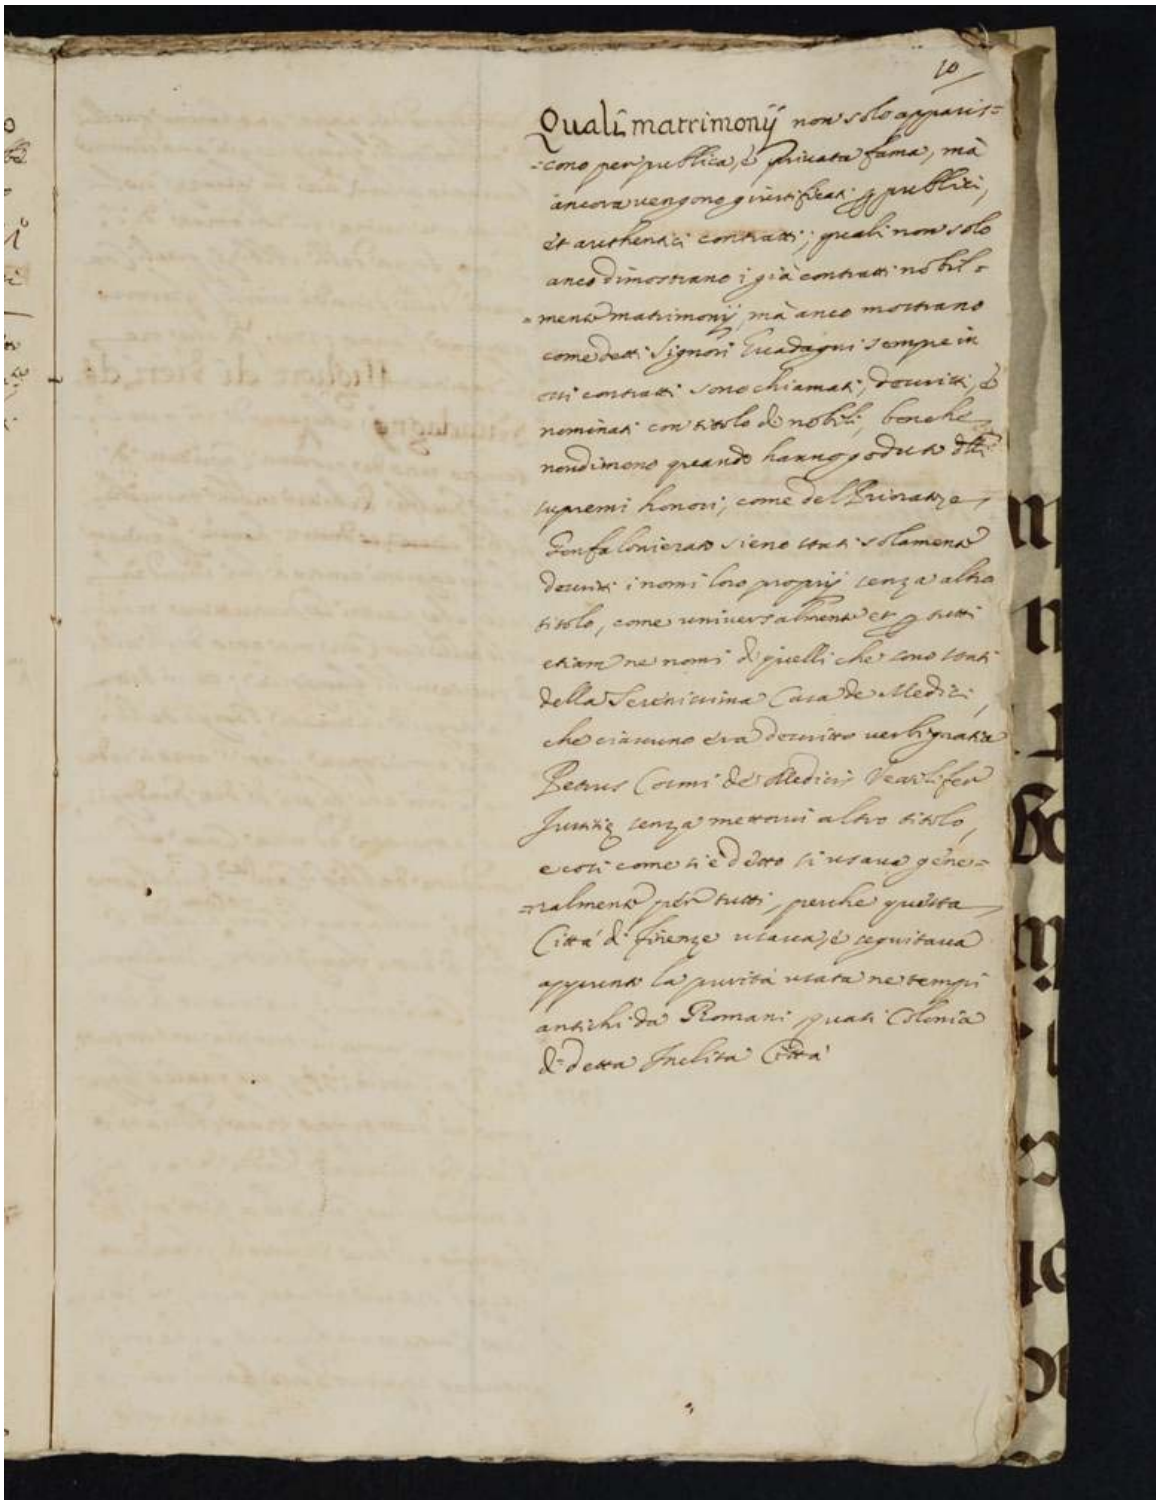 10
Quali matrimonij non solo apparis=
=cono per publica, è privata fama, mà
ancora vengono giustificati p publici,
et authentici contratti; quali non solo
anco dimostrano i già contratti nobil=
=mente matrimonij, mà anco mostrano
come detti Signori Guadagni sempre in
essi contratti sono chiamati, descritti, è
nominati con titolo di nobili, benche
nondimeno quando hanno goduto detti
supremi honori, come del Priorato, e
Gonfalonierato sieno stati solamente
descritti i nomi loro proprij senza altro
titolo, come universalmente et p tutti
etiam ne nomi di quelli che sono stati
della Serenissima Casa de Medici,
che ciascuno era descritto verbigratia
Petrus Cosmi de Medicis Vexilifer
Justitię senza mettervi altro titolo,
e cosi come si è detto si usava gene=
=ralmente per tutti, perche questa
Città di Firenze usava, è seguitava
appunto la purità usata ne tempi
antichi da Romani, quasi Colonia
di detta Inclita Città